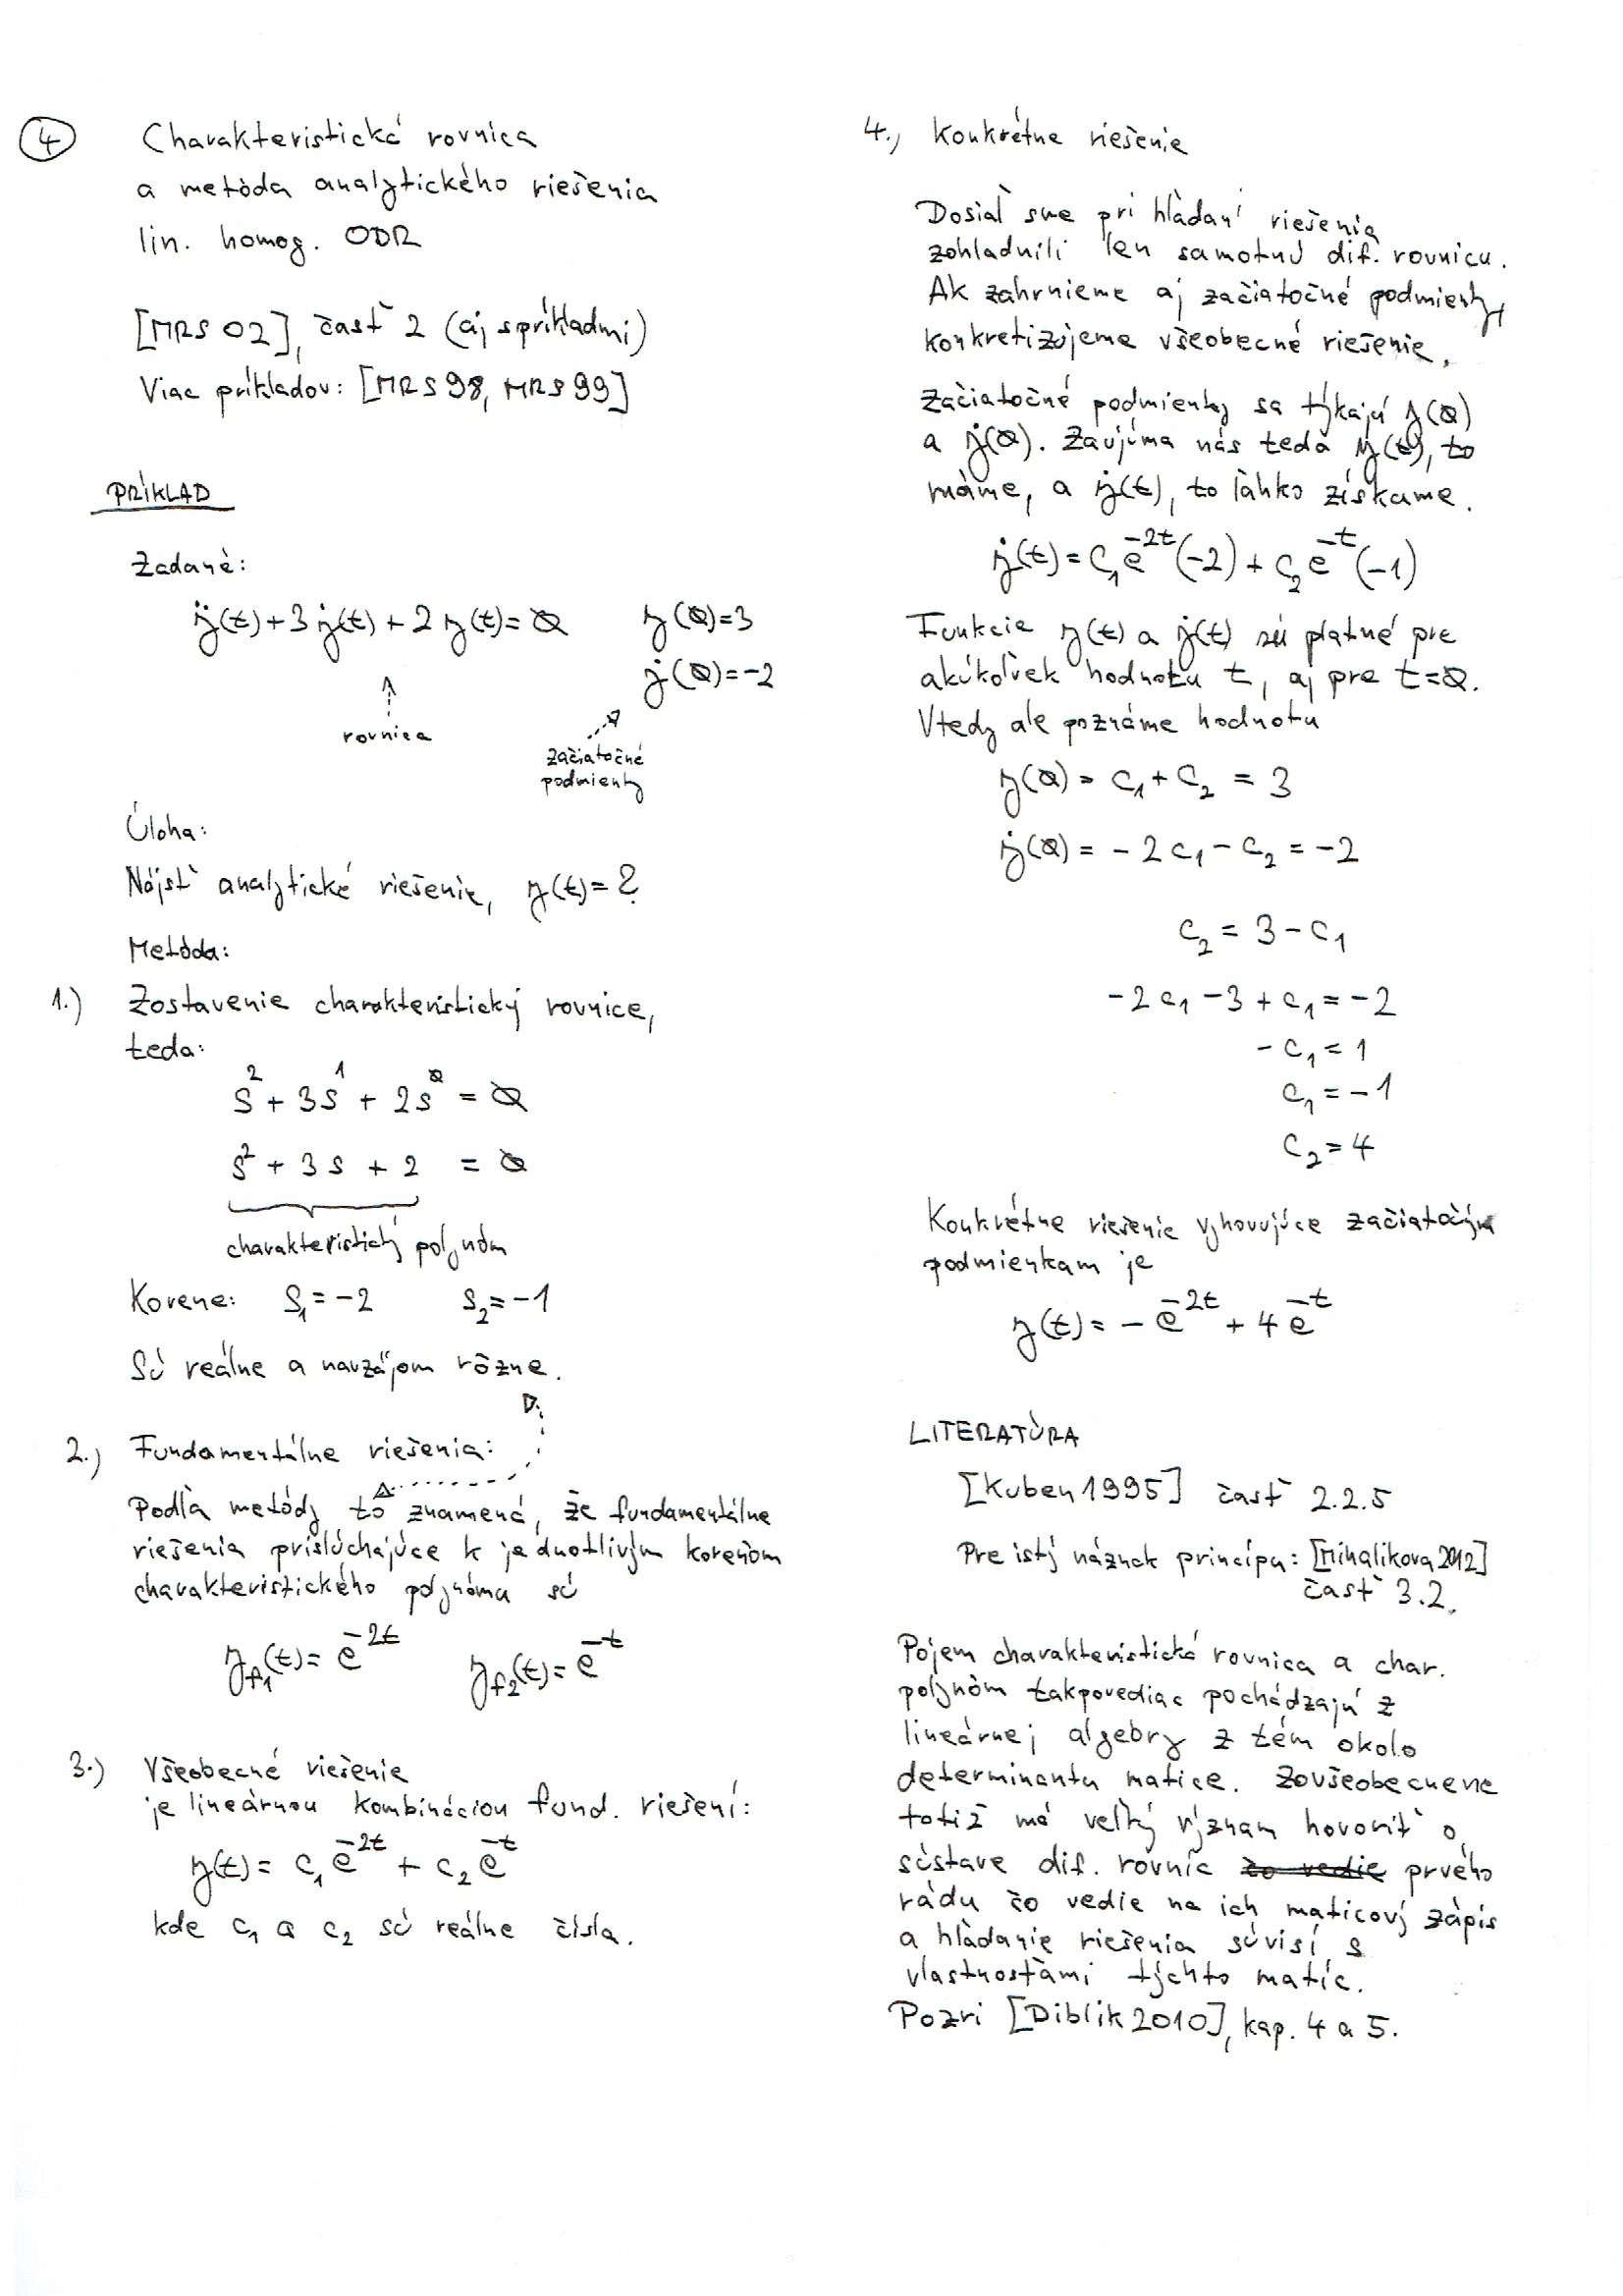 4
Charakteristická rovnica
a metóda analytického riešenia
lin. homog. ODR
[MRS 02], časť 2 (aj s príkladmi)
Viac príkladov: [MRS 98, MRS 99]
PRÍKLAD
Zadané:
ÿ(t) + 3 ẏ(t) + 2 y(t) = 0    y(0) = 3
ẏ(0) = -2
rovnica
začiatočné
podmienky
Úloha:
Nájsť analytické riešenie, y(t) = ?
Metóda:
1.) Zostavenie charakteristický rovnice,
teda:
s² + 3s¹ + 2s⁰ = 0
s² + 3s + 2 = 0
charakteristický polynóm
Korene: s₁ = -2    s₂ = -1
Sú reálne a navzájom rôzne.
2.) Fundamentálne riešenia:
Podľa metódy to znamená, že fundamentálne
riešenia prislúchajúce k jednotlivým koreňom
charakteristického polynómu sú
y_f1(t) = e^(-2t)    y_f2(t) = e^(-t)
3.) Všeobecné riešenie
je lineárnou kombináciou fund. riešení:
y(t) = c₁ e^(-2t) + c₂ e^(-t)
kde c₁ a c₂ sú reálne čísla.
4.) Konkrétne riešenie
Dosiaľ sme pri hľadaní riešenia
zohľadnili len samotnú dif. rovnicu.
Ak zahrnieme aj začiatočné podmienky,
konkretizujeme všeobecné riešenie.
Začiatočné podmienky sa týkajú y(0)
a ẏ(0). Zaujíma nás teda y(t), to
máme, a ẏ(t), to ľahko získame.
ẏ(t) = c₁ e^(-2t) (-2) + c₂ e^(-t) (-1)
Funkcie y(t) a ẏ(t) sú platné pre
akúkoľvek hodnotu t, aj pre t=0.
Vtedy ale poznáme hodnotu
y(0) = c₁ + c₂ = 3
ẏ(0) = -2c₁ - c₂ = -2
c₂ = 3 - c₁
-2c₁ - 3 + c₁ = -2
-c₁ = 1
c₁ = -1
c₂ = 4
Konkrétne riešenie vyhovujúce začiatočným
podmienkam je
y(t) = -e^(-2t) + 4e^(-t)
LITERATÚRA
[Kuben 1995] časť 2.2.5
Pre istý náznak princípu: [Mihalikova 2012]
časť 3.2.
Pojem charakteristická rovnica a char.
polynóm takpovediac pochádzajú z
lineárnej algebry z tém okolo
determinantu matice. Zovšeobecnene
totiž má veľký význam hovoriť o
sústave dif. rovníc čo vedie prvého
rádu čo vedie na ich maticový zápis
a hľadanie riešenia súvisí s
vlastnosťami týchto matíc.
Pozri [Diblik 2010], kap. 4 a 5.